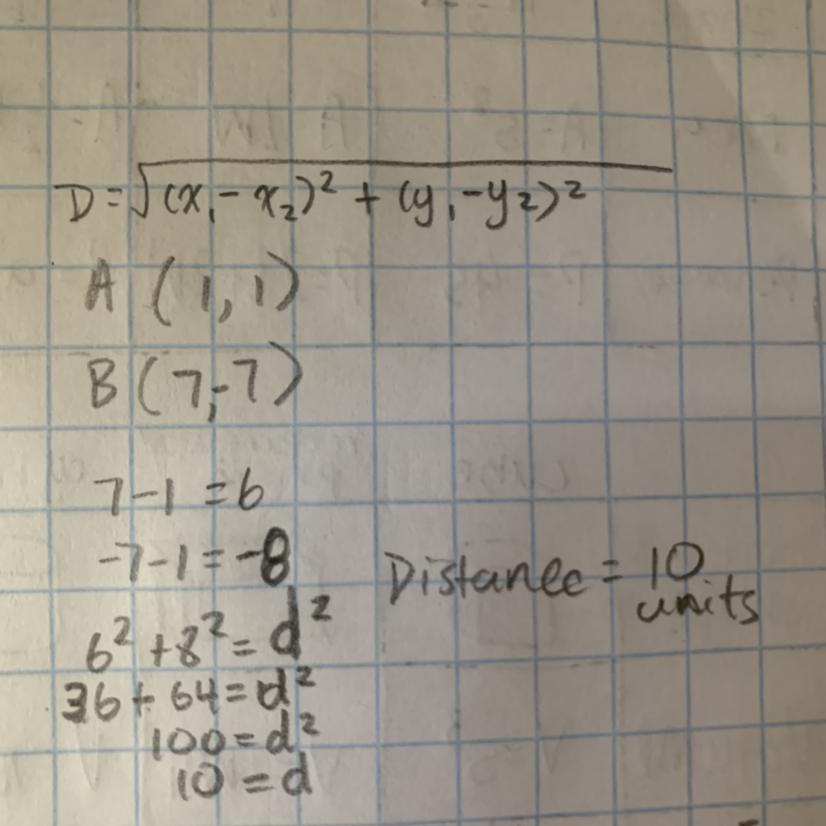 D = √(x₁ - x₂)² + (y₁ - y₂)²
A (1, 1)
B (7, -7)
7 - 1 = 6
-7 - 1 = -8
6² + 8² = d²
36 + 64 = d²
100 = d²
10 = d
Distance = 10
units